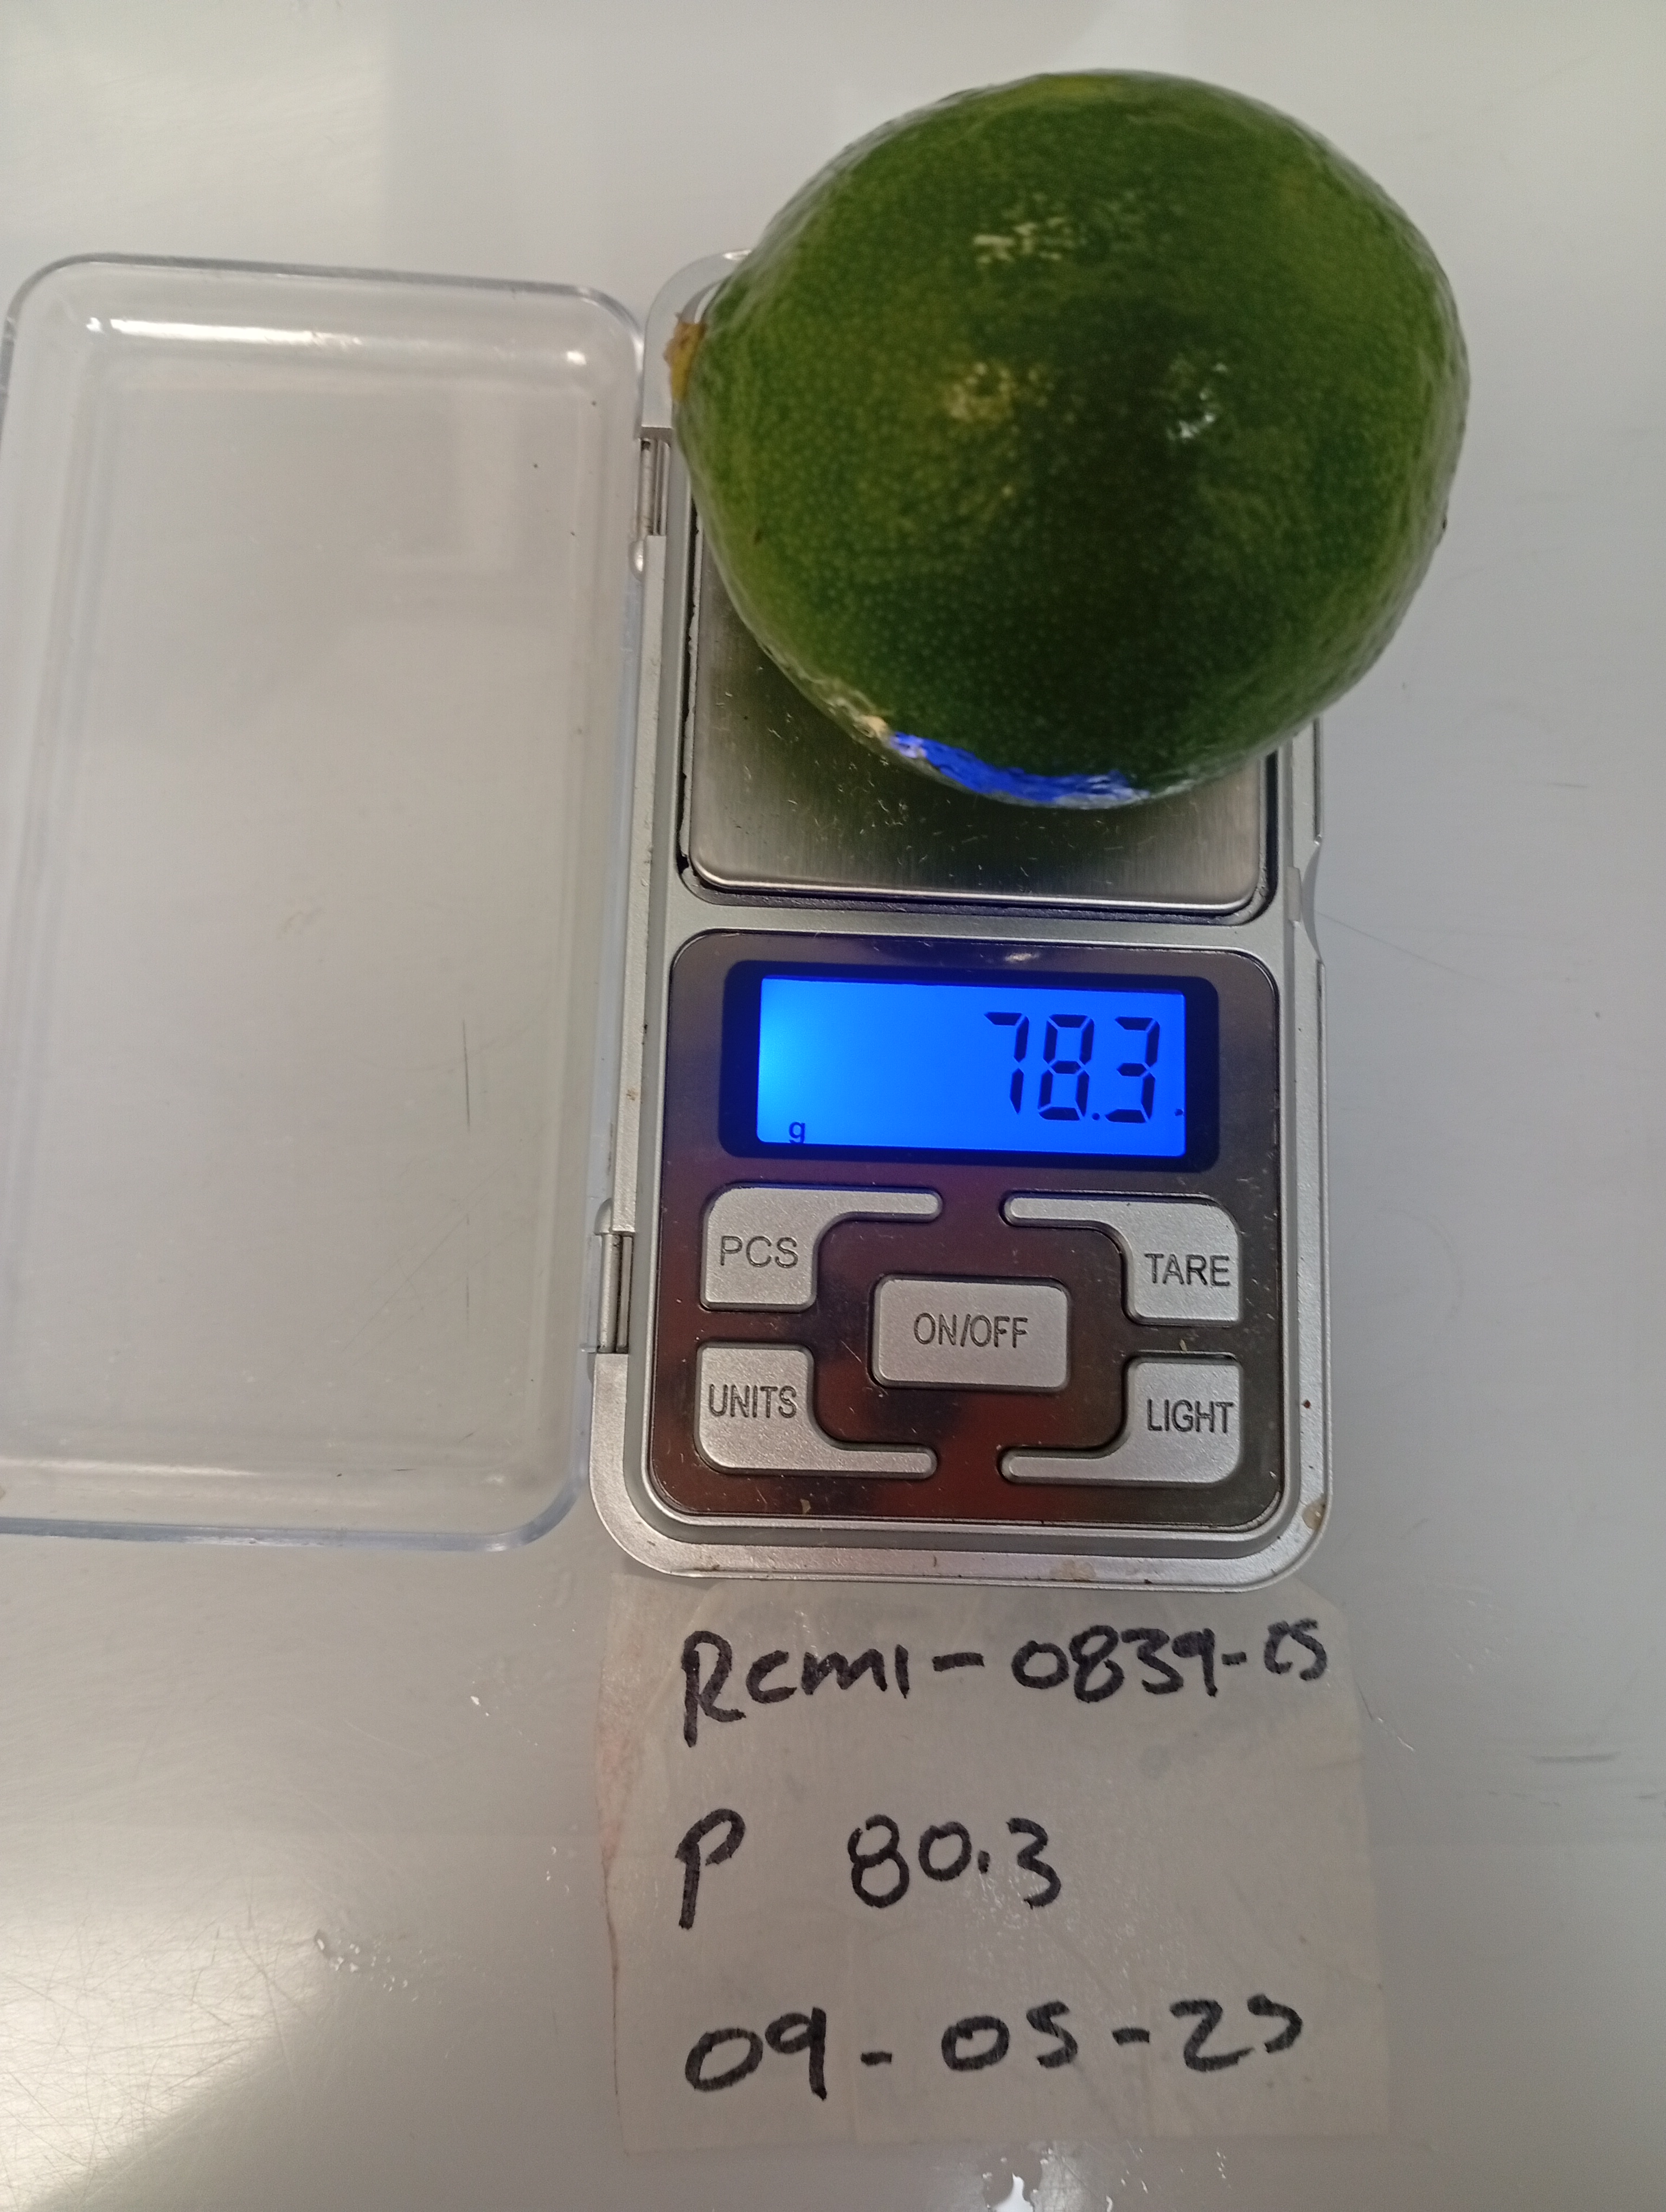 78.3
g
PCS
TARE
ON/OFF
UNITS
LIGHT
Rcm1-0839-25
P 80.3
09-05-25